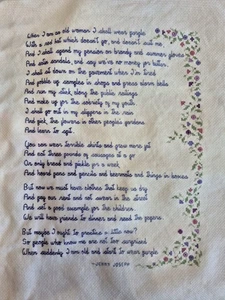 When I am an old woman I shall wear purple
With a red hat which doesn't go, and doesn't suit me,
And I shall spend my pension on brandy and summer gloves
And satin sandals, and say we've no money for butter.
I shall sit down on the pavement when I'm tired
And gobble up samples in shops and press alarm bells
And run my stick along the public railings
And make up for the sobriety of my youth.
I shall go out in my slippers in the rain
And pick the flowers in other people's gardens
And learn to spit.
You can wear terrible shirts and grow more fat
And eat three pounds of sausages at a go
Or only bread and pickle for a week
And hoard pens and pencils and beermats and things in boxes.
But now we must have clothes that keep us dry
And pay our rent and not swear in the street
And set a good example for the children.
We will have friends to dinner and read the papers.
But maybe I ought to practise a little now?
So people who know me are not too surprised
When suddenly I am old and start to wear purple
-JENNY JOSEPH-